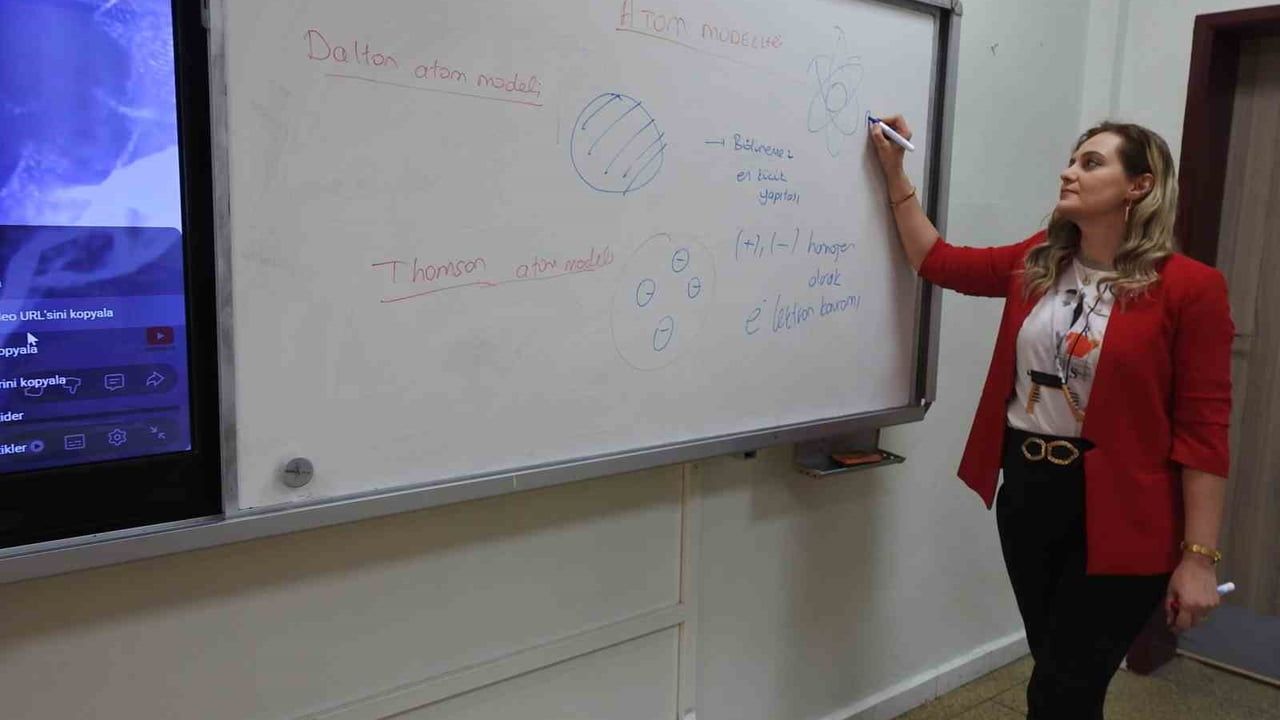 ATOM MODELLERİ
Dalton atom modeli
→ Bölünemez
en küçük
yapıtaşı
Thomson atom modeli
(+), (-) homojen
olarak
e⁻lektron kavramı
eo URL'sini kopyala
opyala
rini kopyala
ider
tikler